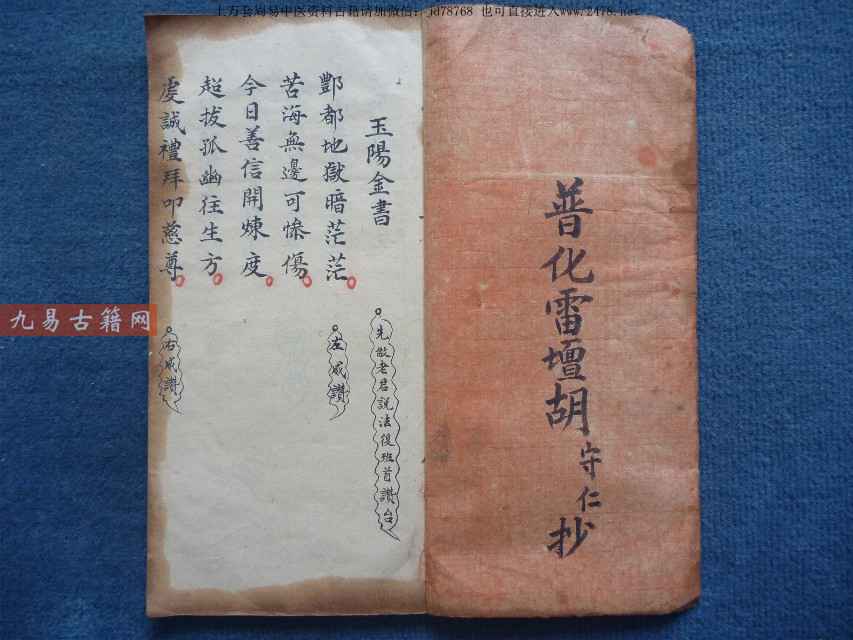 上万套周易中医资料古籍请加微信：jd78768 也可直接进入www.2478.net
普化雷壇胡守仁抄
玉陽金書
先散老君説法後班首讃台
酆都地獄暗茫茫
左咸讃
苦海無邊可慘傷
今日善信開煉度
超拔孤幽往生方
虔誠禮拜叩慈尊
右咸讃
九易古籍网